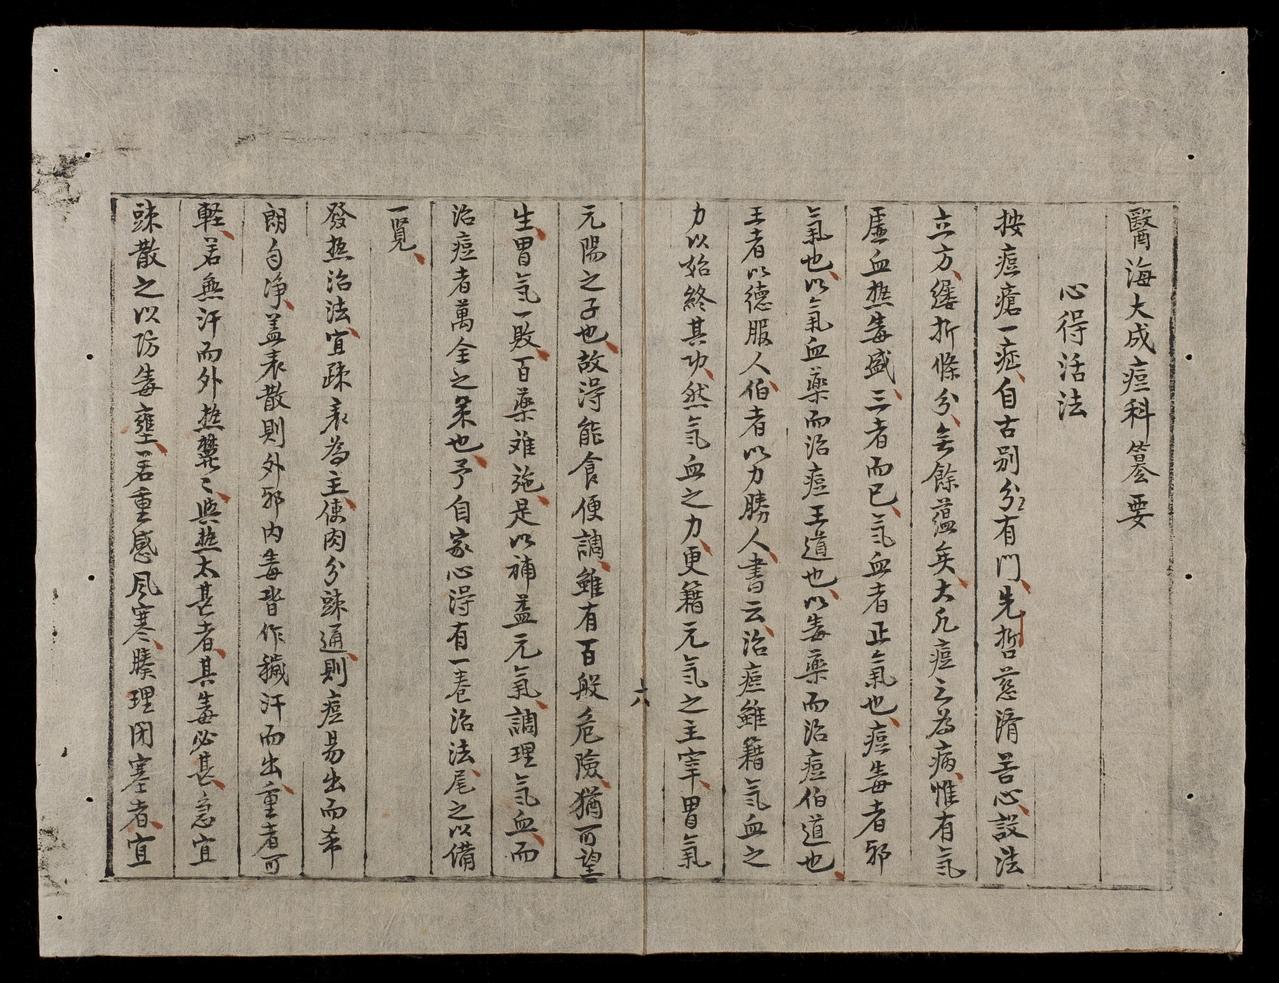 醫海大成痘科纂要
心得活法
按痘瘡一症自古别分々有門先哲慈濟苦心設法
立方縷析條分無餘蘊矣大凡痘之為病惟有氣
虛血熱毒盛三者而已氣血者正氣也痘毒者邪
氣也以氣血藥而治痘王道也以毒藥而治痘伯道也
王者以德服人伯者以力勝人書云治痘雖籍氣血之
力以始終其功然氣血之力更籍元氣之主宰胃氣
六
元陽之子也故得能食便調雖有百般危險猶可望
生胃氣一敗百藥难施是以補益元氣調理氣血而
治痘者萬全之策也予自家心得有一卷治法尾之以備
一覧
發热治法宜疎表為主使肉分疎通則痘易出而希
朗自净盖表散則外邪内毒皆作穢汗而出重者可
軽若無汗而外热蒸々與热太甚者其毒必甚急宜
疎散之以防毒壅若重感风寒腠理闭塞者宜